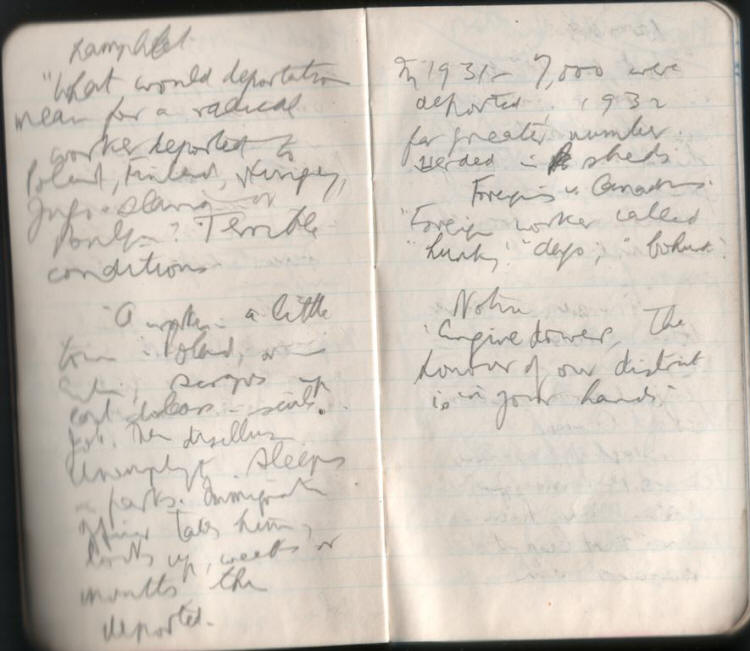 Pamphlet
"What would deportation
mean for a radical
worker deported to
Poland, Finland, Hungary,
Jugo-Slavia or
? Terrible
conditions.
A worker in a little
town in Poland, or in
scrapes up
seeks
job. Then disillus.
Unemployt. Sleeps
in parks. Immigration
officer takes him,
locks up, weeks or
months, then
deported.
In 1931 - 7,000 were
deported. 1932
far greater number.
Herded in sheds
Foreigners v. Canadians.
"Foreign worker called
"hunky," "dego," "bohunk".
Notice
"Engine drivers, The
honour of our district
is in your hands"